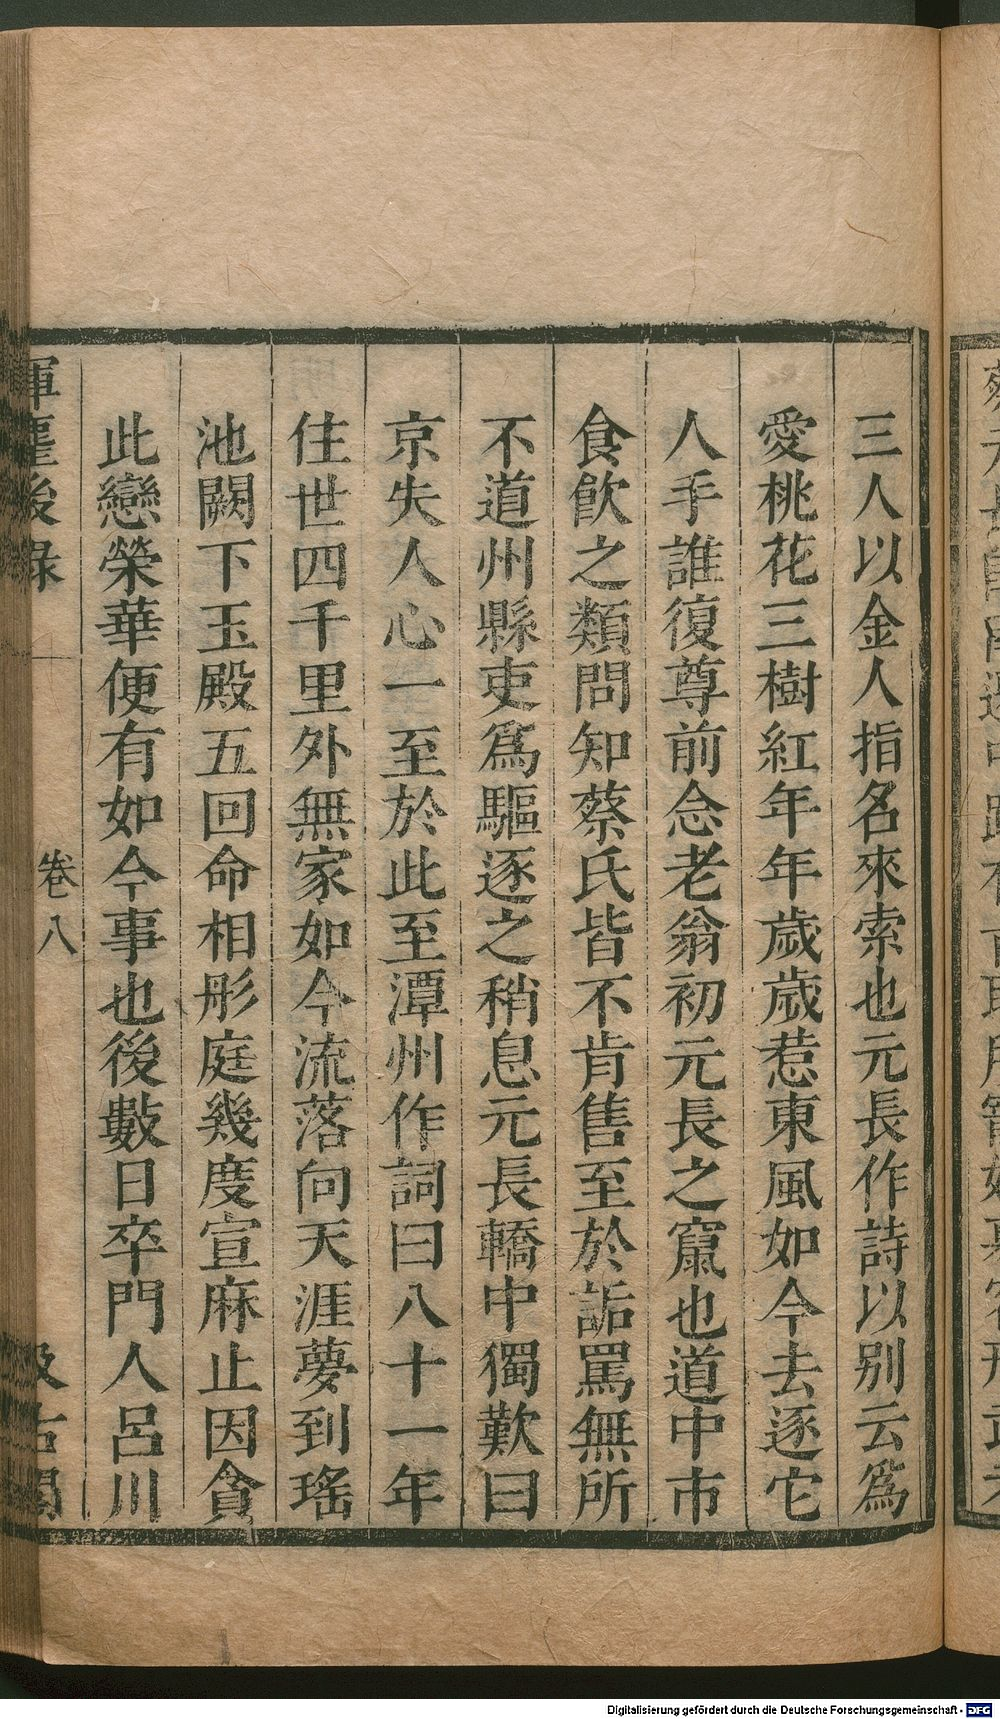 三人以金人指名來索也元長作詩以别云爲
愛桃花三樹紅年年歲歲惹東風如今去逐它
人手誰復尊前念老翁初元長之竄也道中市
食飲之類問知蔡氏皆不肯售至於詬罵無所
不道州縣吏爲驅逐之稍息元長轎中獨歎曰
京失人心一至於此至潭州作詞曰八十一年
住世四千里外無家如今流落向天涯夢到瑤
池闕下玉殿五回命相彤庭幾度宣麻止因貪
此戀榮華便有如今事也後數日卒門人呂川
揮麈後錄 卷八 汲古閣
Digitalisierung gefördert durch die Deutsche Forschungsgemeinschaft - DFG